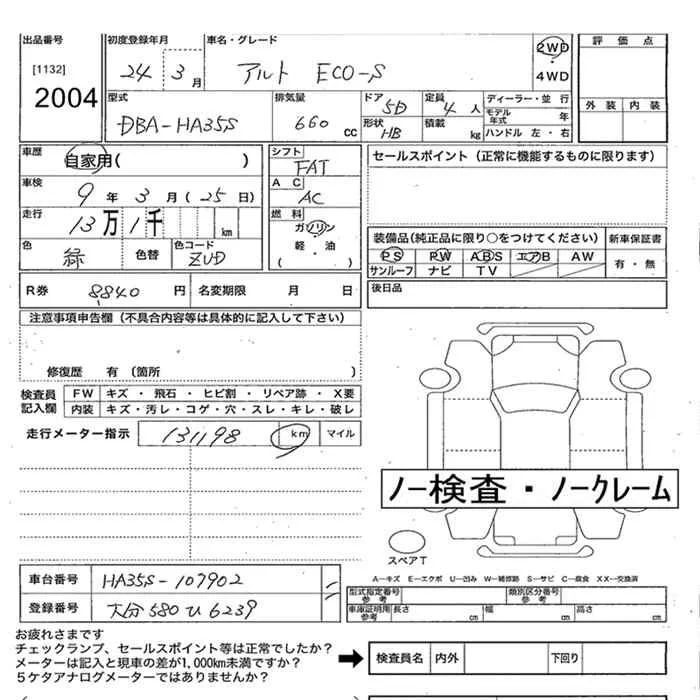 出品番号 初度登録年月 車名・グレード 評価点
[1132] 24 3月 アルト ECO-S 2WD ・ 4WD
2004 外装 内装
型式 排気量 ドア 5D 定員 4人 ディーラー・並行
DBA-HA35S 660cc 形状 HB 積載 kg モデル年式 年
ハンドル 左・右
車歴 自家用( ) シフト FAT セールスポイント (正常に機能するものに限ります)
車検 9年 3月 (25日) AC AC
走行 13万 1千 km 燃料 ガソリン・軽・油 ( )
装備品(純正品に限り○をつけてください) 新車保証書
色 緑 色替 色コード ZUD PS PW ABS エアB AW 有・無
サンルーフ ナビ TV
R券 8840円 名変期限 月 日 後日品
注意事項申告欄 (不具合内容等は具体的に記入して下さい)
修復歴 有 (箇所 )
検査員記入欄 FW キズ・飛石・ヒビ割・リペア跡・X要
内装 キズ・汚レ・コゲ・穴・スレ・キレ・破レ
走行メーター指示 131198 km マイル
ノー検査・ノークレーム
スペアT
A−キズ E−エクボ U−凹み W−補修跡 S−サビ C−腐食 XX−交換済
車台番号 HA35S-107902 〃 型式指定番号 参考 類別区分番号 参考
登録番号 大分580ひ6239 車庫証明用 参考 長さ cm 幅 cm 高さ cm
お疲れさまです
チェックランプ、セールスポイント等は正常でしたか?
メーターは記入と現車の差が1,000km未満ですか?
5ケタアナログメーターではありませんか?
検査員名 内外 下回り